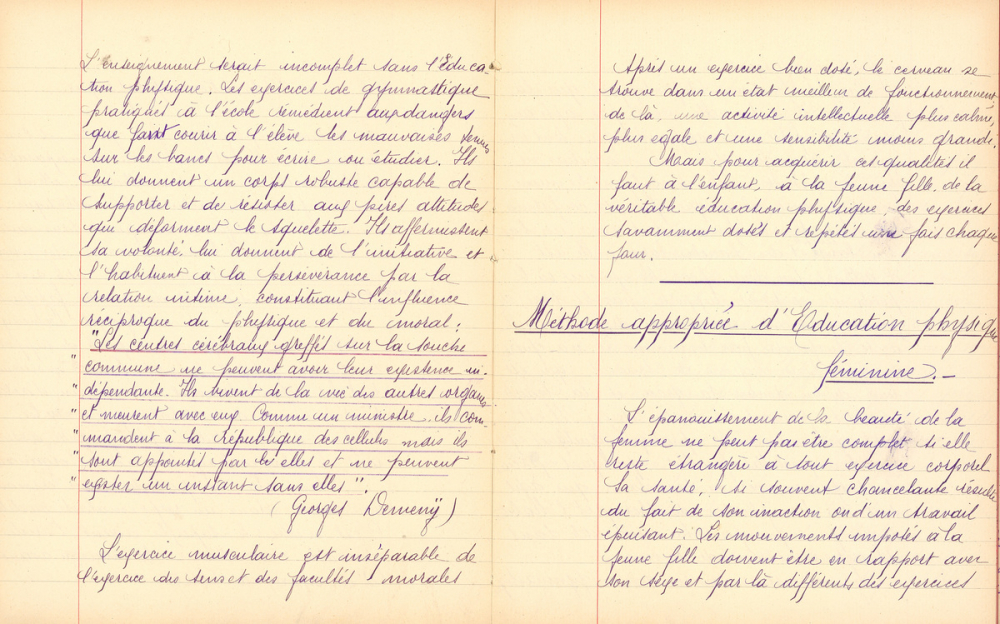 L'enseignement serait incomplet sans l'Educa-
tion physique. Les exercices de gymnastique
pratiqués à l'école remédient aux dangers
que font courir à l'élève les mauvaises tenues
sur les bancs pour écrire ou étudier. Ils
lui donnent un corps robuste capable de
supporter et de résister aux pires attitudes
qui déforment le squelette. Ils affermissent
sa volonté, lui donnent de l'initiative et
l'habituent à la persévérance par la
relation intime, constituant l'influence
réciproque du physique et du moral :
"Les centres cérébraux greffés sur la souche
" commune ne peuvent avoir leur existence in-
" dépendante. Ils vivent de la vie des autres organes
" et meurent avec eux. Comme un ministre, ils com-
" mandent à la république des cellules mais ils
" sont appointés par elles et ne peuvent
" exister un instant sans elles".
(Georges Demenÿ)
L'exercice musculaire est inséparable de
l'exercice des sens et des facultés morales
Après un exercice bien dosé, le cerveau se
trouve dans un état meilleur de fonctionnement
de là, une activité intellectuelle plus calme,
plus égale et une sensibilité moins grande.
Mais pour acquérir ces qualités il
faut à l'enfant, à la jeune fille, de la
véritable éducation physique, des exercices
savamment dosés et répétés une fois chaque
jour.
Méthode appropriée d'Education physique
féminine.-
L'épanouissement de la beauté de la
femme ne peut pas être complet si elle
reste étrangère à tout exercice corporel
Sa santé, si souvent chancelante résulte
du fait de son inaction ou d'un travail
épuisant. Les mouvements imposés à la
jeune fille doivent être en rapport avec
son sexe et par là différents des exercices